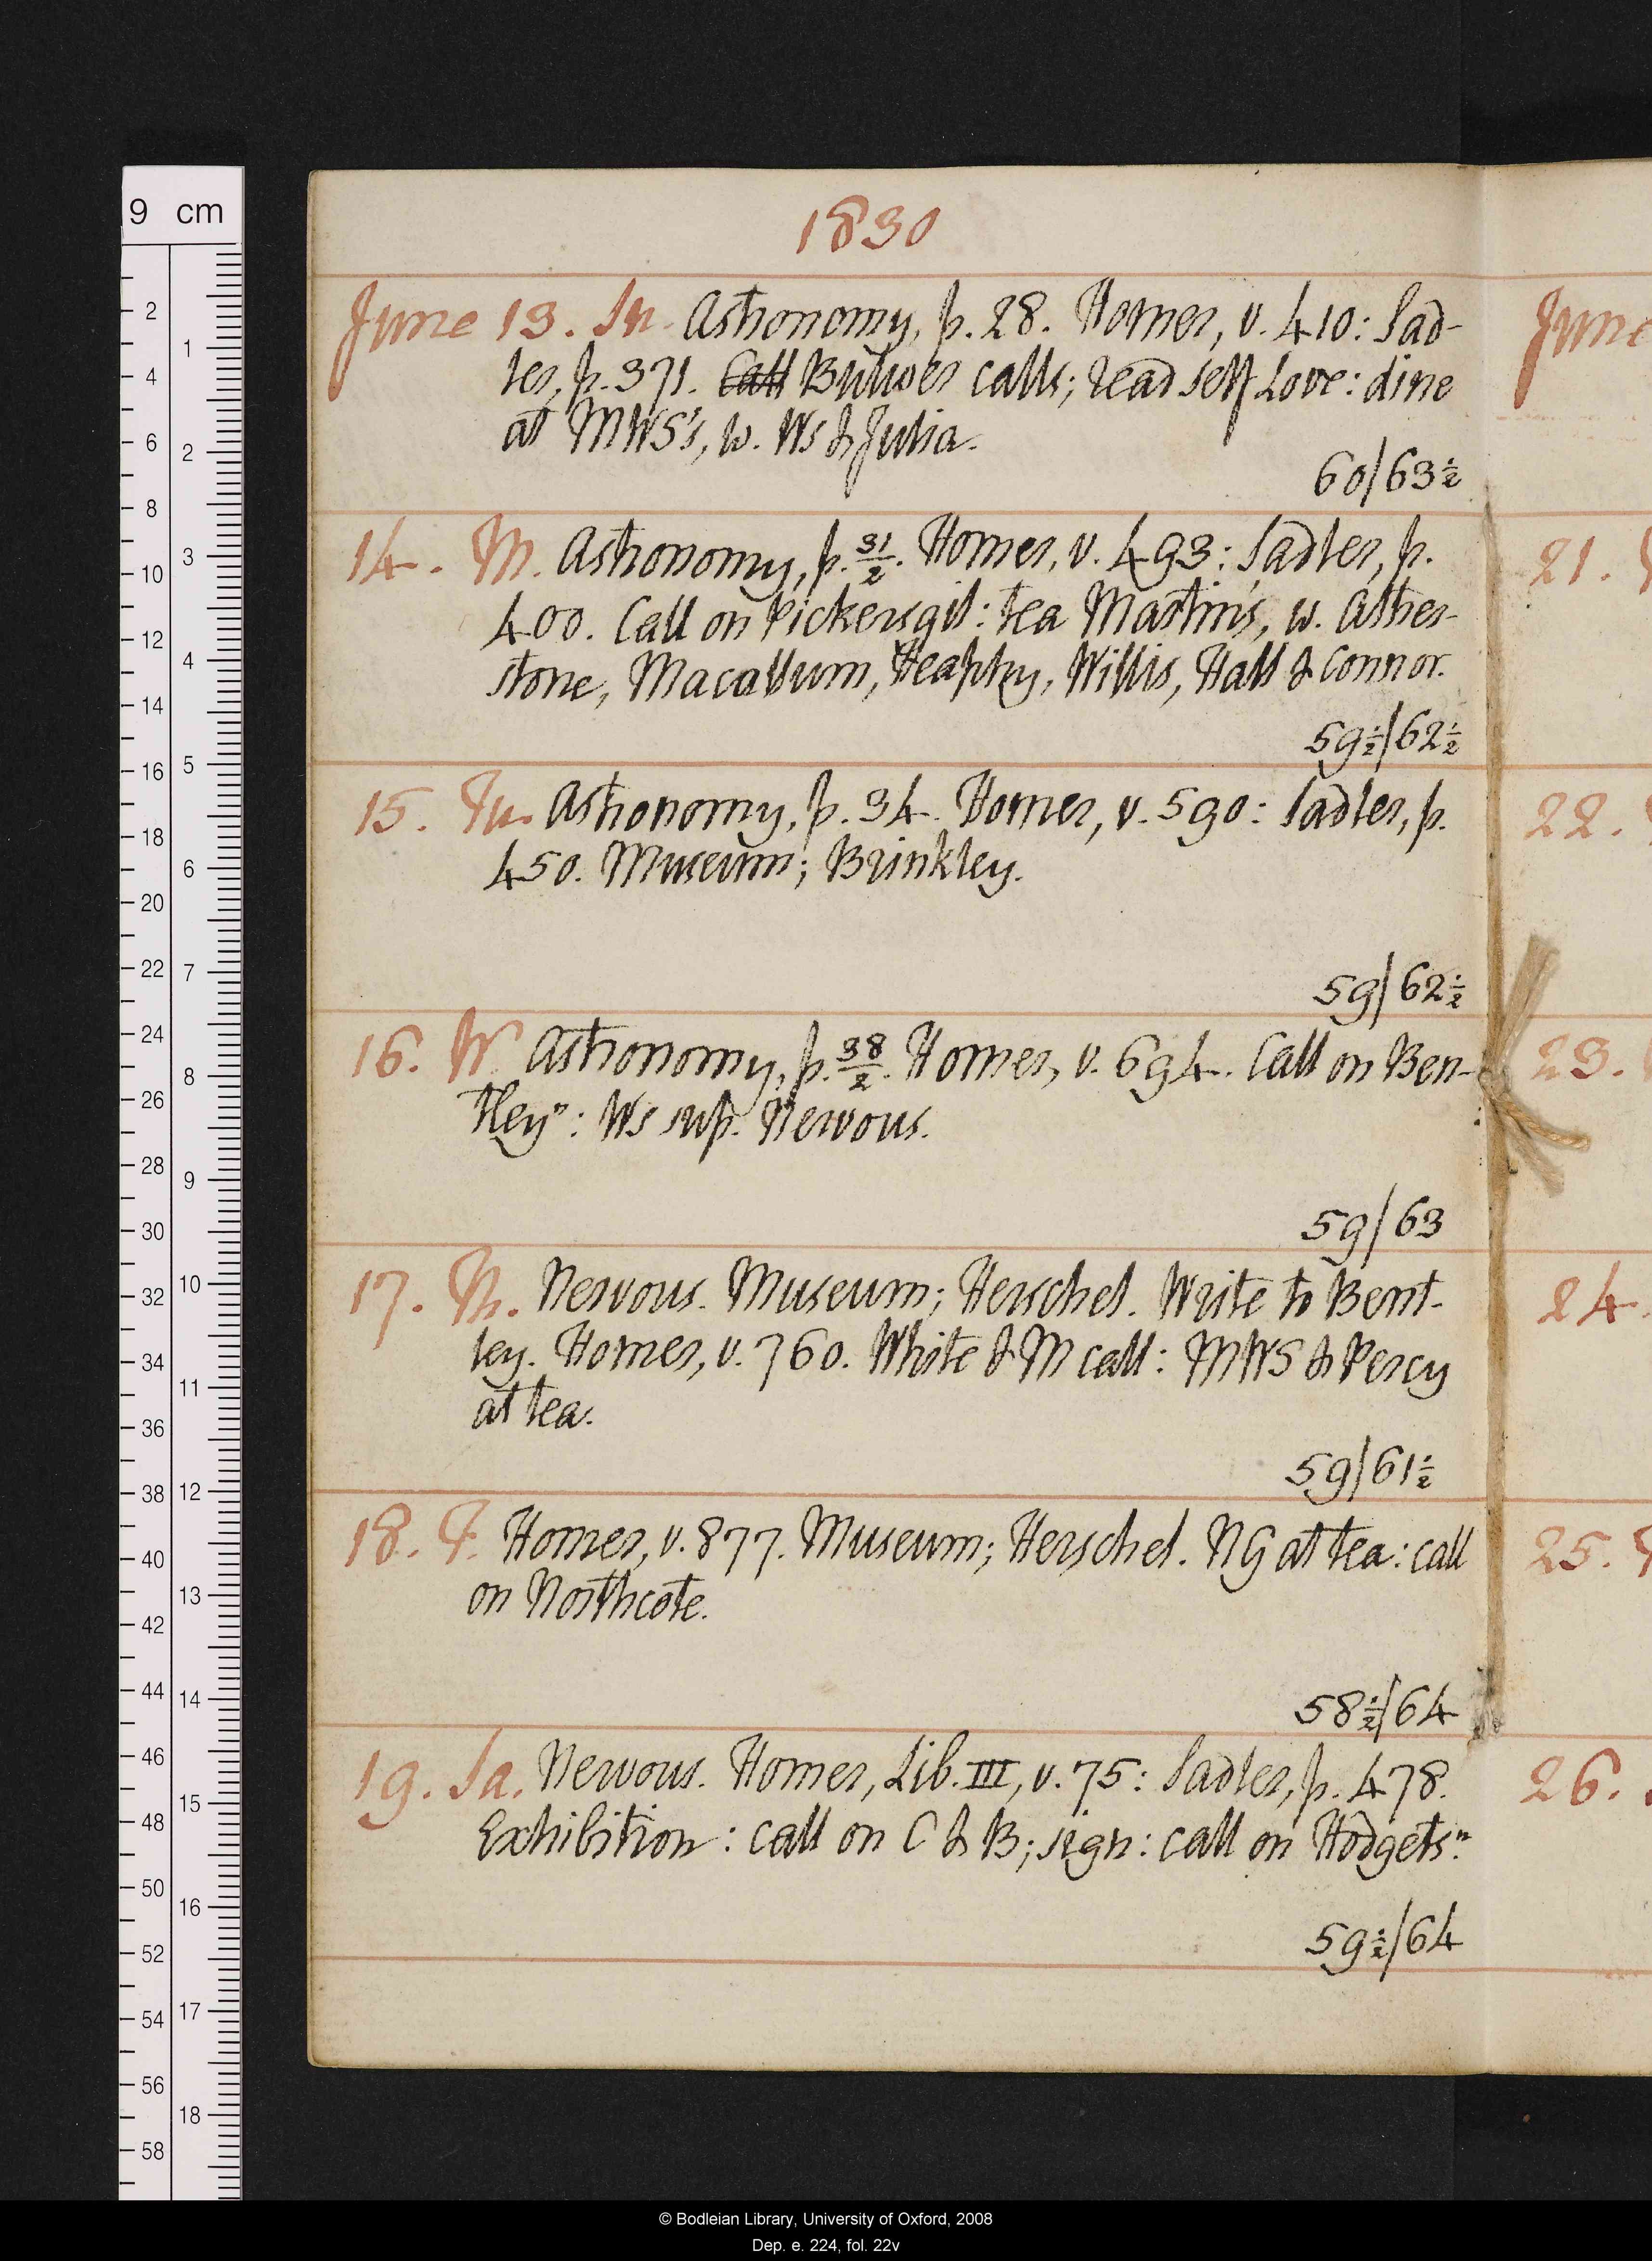 1830
June 13. Su. Astronomy, p. 28. Homer, v. 410: Sad-
ler, p. 371. Call Bulwer calls; read Self Love: dine
at MWS's, w. Ws & Julia.
60/63½
14. M. Astronomy, p. 31/2. Homer, v. 493: Sadler, p.
400. Call on Pickersgil: tea Martin's, w. Ather-
stone, Macallum, Heaphy, Willis, Hall & Connor.
59½/62½
15. Tu. Astronomy, p. 34. Homer, v. 590: Sadler, p.
450. Museum; Brinkley.
59/62½
16. W. Astronomy, p. 38/2. Homer, v. 694. Call on Ben-
tley": Ws sup. Nervous.
59/63
17. Th. Nervous. Museum; Herschel. Write to Bent-
ley. Homer, v. 760. White & M call: MWS & Percy
at tea.
59/61½
18. F. Homer, v. 877. Museum; Herschel. NG at tea: call
on Northcote.
58½/64
19. Sa. Nervous. Homer, Lib. III, v. 75: Sadler, p. 478.
Exhibition: call on C & B; sign: call on Hodgets".
59½/64
June
21.
22.
23.
24.
25.
26.
9 cm
2
4
6
8
10
12
14
16
18
20
22
24
26
28
30
32
34
36
38
40
42
44
46
48
50
52
54
56
58
1
2
3
4
5
6
7
8
9
10
11
12
13
14
15
16
17
18
© Bodleian Library, University of Oxford, 2008
Dep. e. 224, fol. 22v